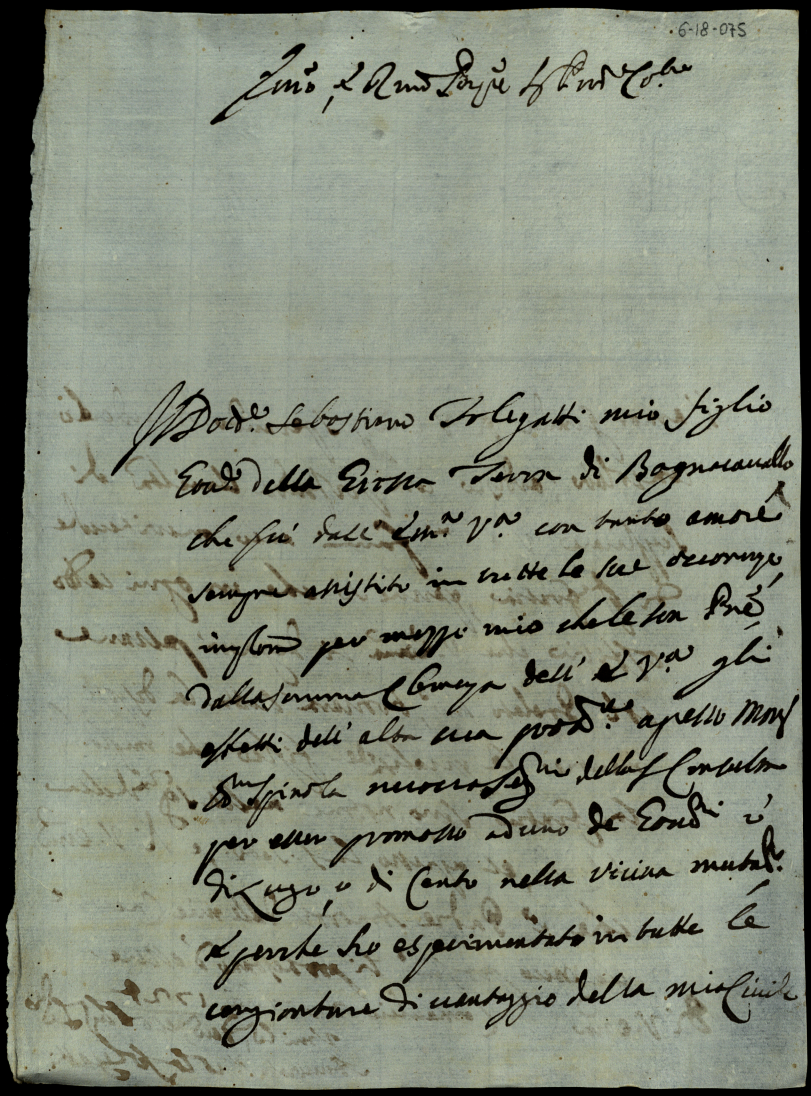 6-18-075
Em.o e R.mo
Dott.e Sebastiano Folegatti mio figlio
Gov.re della Grossa Terra di Bagnacavallo
che fù dall' Em.a V.a con tanto amore
sempre assistito in tutte le sue occorenze,
per mezzo mio
dalla somma Clemenza dell' E. V.a gli
effetti dell' alta sua prott.e apresso Mons
Spinola nuovo Seg.rio della S. Consulta
per esser promosso ad uno de Gov.ni ò
di Lugo, o di Cento nella vicina mutat.e
e perche hò esperimentato in tutte le
congionture di vantaggio della mia Civile